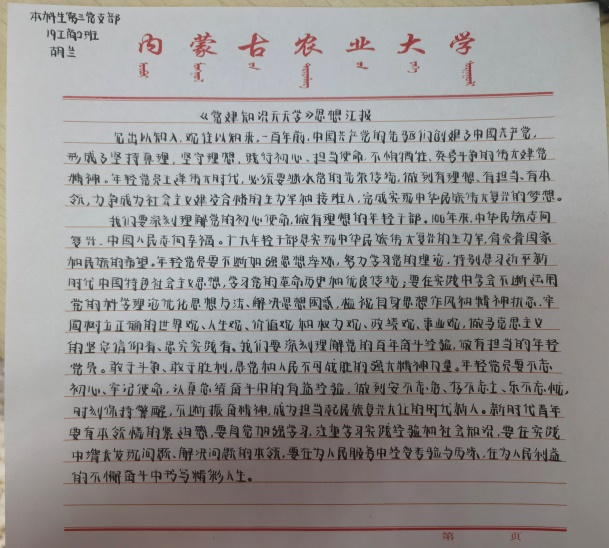 本科生第三党支部
19工商2班
胡兰
内蒙古农业大学
《党建知识天天学》思想汇报
鉴出以知入,观往以知来,一百年前,中国共产党的先驱们创建了中国共产党,
形成了坚持真理,坚守理想,践行初心,担当使命,不怕牺牲,英勇斗争的伟大建党
精神。年轻党员上逢伟大时代,必须要继承党的光荣传统,做到有理想,有担当,有本
领,力争成为社会主义建设合格的生力军和接班人,完成实现中华民族伟大复兴的梦想。
我们要深刻理解党的初心使命,做有理想的年轻干部。100年来,中华民族走向
复兴,中国人民走向幸福。广大年轻干部是实现中华民族伟大复兴的生力军,肩负着国家
和民族的希望。年轻党员要不断加强思想淬炼,努力学习党的理论,特别是习近平新
时代中国特色社会主义思想,学习党的革命历史和优良传统;要在实践中学会不断运用
党的科学理论优化思想方法、解决思想困惑,检视自身思想作风和精神状态,牢
固树立正确的世界观、人生观、价值观和权力观、政绩观、事业观,做马克思主义
的坚定信仰者、忠实实践者。我们要深刻理解党的百年奋斗经验,做有担当的年轻
党员。敢于斗争、敢于胜利,是党和人民不可战胜的强大精神力量。年轻党员要不忘
初心、牢记使命,认真总结奋斗中的有益经验,做到安不忘危、存不忘亡、乐不忘忧,
时刻保持警醒,不断振奋精神,成为担当起民族复兴大任的时代新人。新时代青年
要有本领恐慌的紧迫感,要自觉加强学习,注重学习实践经验和社会知识,要在实践
中增长发现问题、解决问题的本领,要在为人民服务中经受考验与历练,在为人民利益
的不懈奋斗中书写精彩人生。
第 页